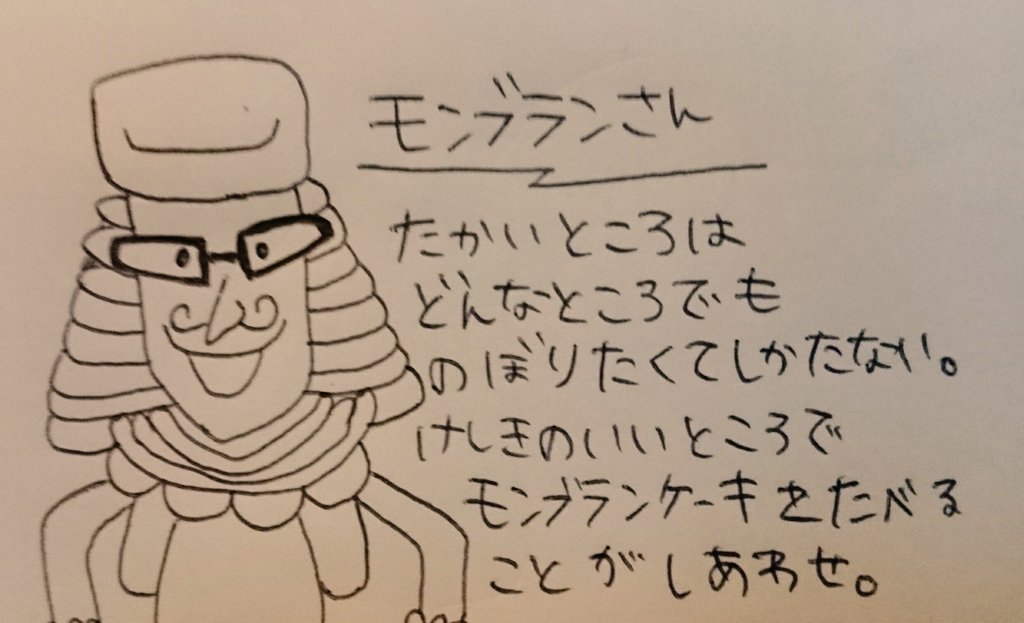 モンブランさん
たかいところは
どんなところでも
のぼりたくてしかたない。
けしきのいいところで
モンブランケーキをたべる
ことがしあわせ。